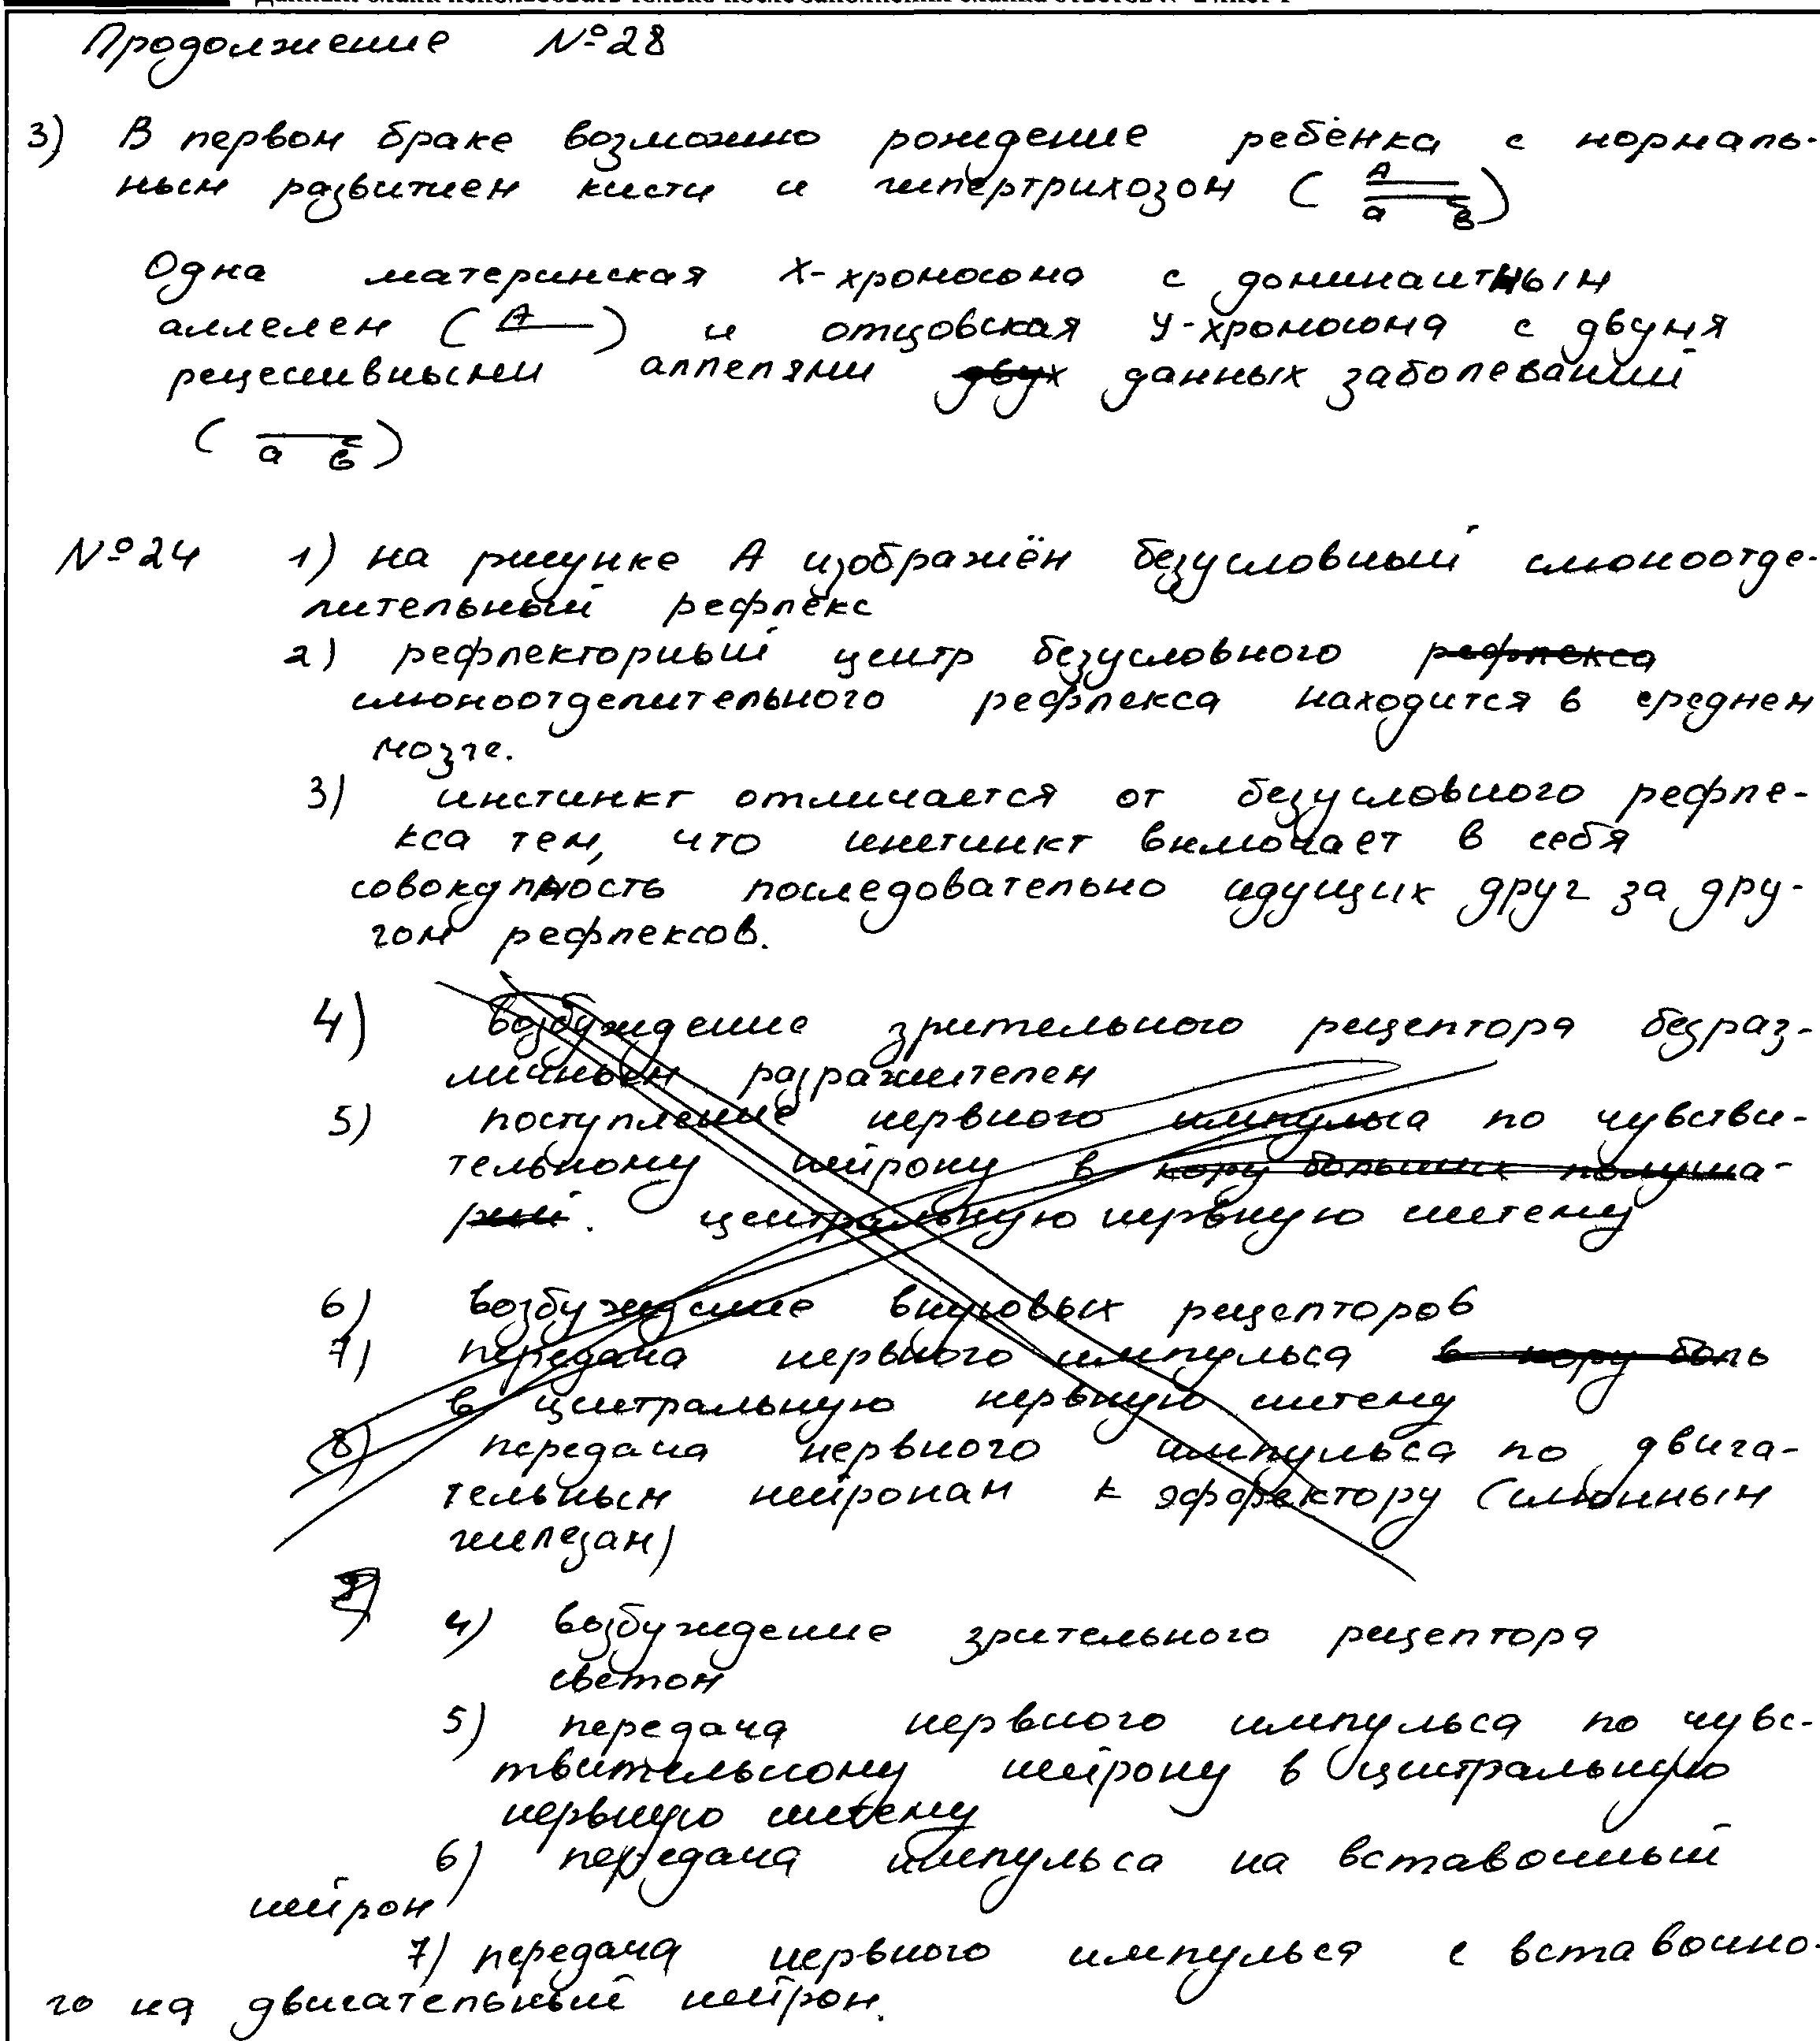 Продолжение №28
3) В первом браке возможно рождение ребёнка с нормаль-
ным развитием кисти и гипертрихозом ( A / a в )
Одна материнская X-хромосома с доминантным
аллелем ( A ) и отцовская У-хромосома с двумя
рецессивными аллелями двух данных заболеваний
( а в )
№24 1) на рисунке А изображён безусловный слюноотде-
лительный рефлекс
2) рефлекторный центр безусловного рефлекса
слюноотделительного рефлекса находится в среднем
мозге.
3) инстинкт отличается от безусловного рефле-
кса тем, что инстинкт включает в себя
совокупность последовательно идущих друг за дру-
гом рефлексов.
4) возбуждение зрительного рецептора безраз-
личным раздражителем
5) поступление нервного импульса по чувстви-
тельному нейрону в кору больших полуша-
рий. центральную нервную систему
6) возбуждение вкусовых рецепторов
7) передача нервного импульса в кору боль
в центральную нервную систему
8) передача нервного импульса по двига-
тельным нейронам к эффектору (слюнным
железам)
4) возбуждение зрительного рецептора
светом
5) передача нервного импульса по чувс-
твительному нейрону в центральную
нервную систему
6) передача импульса на вставочный
нейрон
7) передача нервного импульса с вставочно-
го на двигательный нейрон.